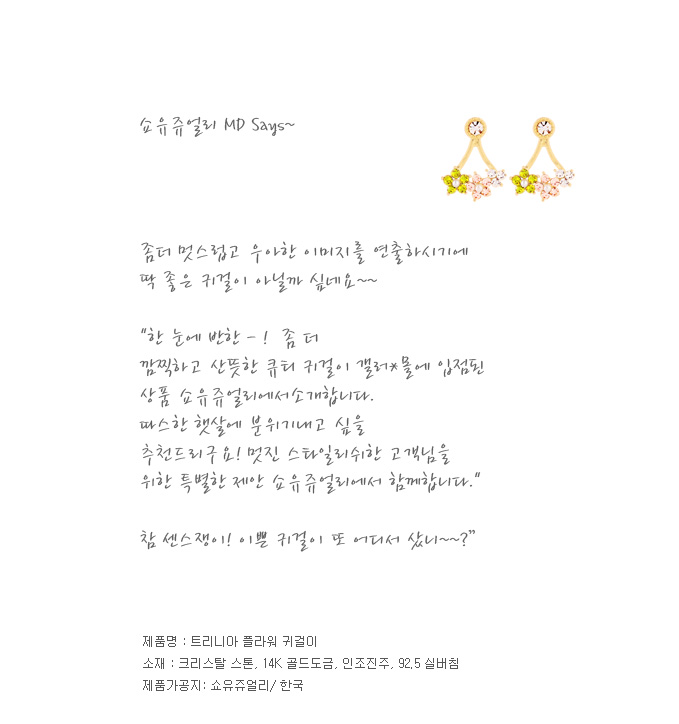 쇼유쥬얼리 MD Says~
좀더 멋스럽고 우아한 이미지를 연출하시기에
딱 좋은 귀걸이 아닐까 싶네요~~
"한 눈에 반한 - ! 좀 더
깜찍하고 산뜻한 큐티 귀걸이 갤러*몰에 입점된
상품 쇼유쥬얼리에서소개합니다.
따스한 햇살에 분위기내고 싶을
추천드리구요! 멋진 스타일리쉬한 고객님을
위한 특별한 제안 쇼유쥬얼리에서 함께합니다."
참 센스쟁이! 이쁜 귀걸이 또 어디서 샀니~~?"
제품명 : 트리니아 플라워 귀걸이
소재 : 크리스탈 스톤, 14K 골드도금, 인조진주, 92.5 실버침
제품가공지: 쇼유쥬얼리/ 한국